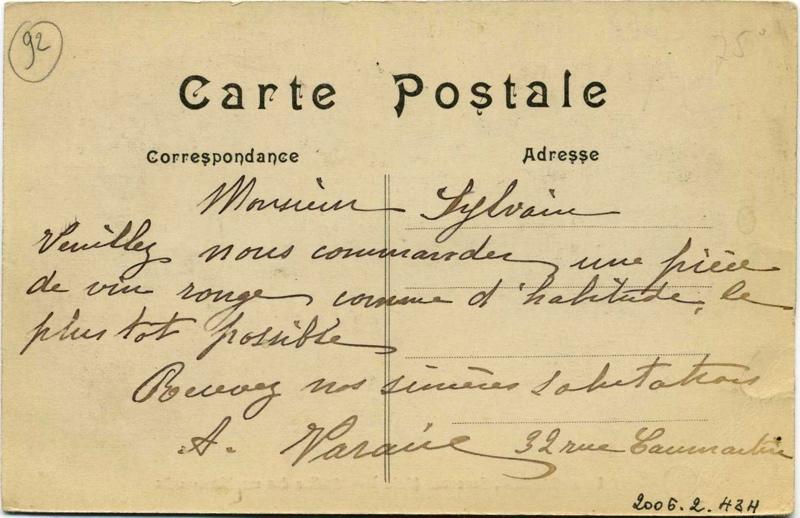 92
25
Carte Postale
Correspondance Adresse
Monsieur Sylvain
Veuillez nous commander une pièce
de vin rouge comme d'habitude, le
plus tot possible
Recevez nos sincères salutations
A. 32 rue Caumartin
2006.2.434